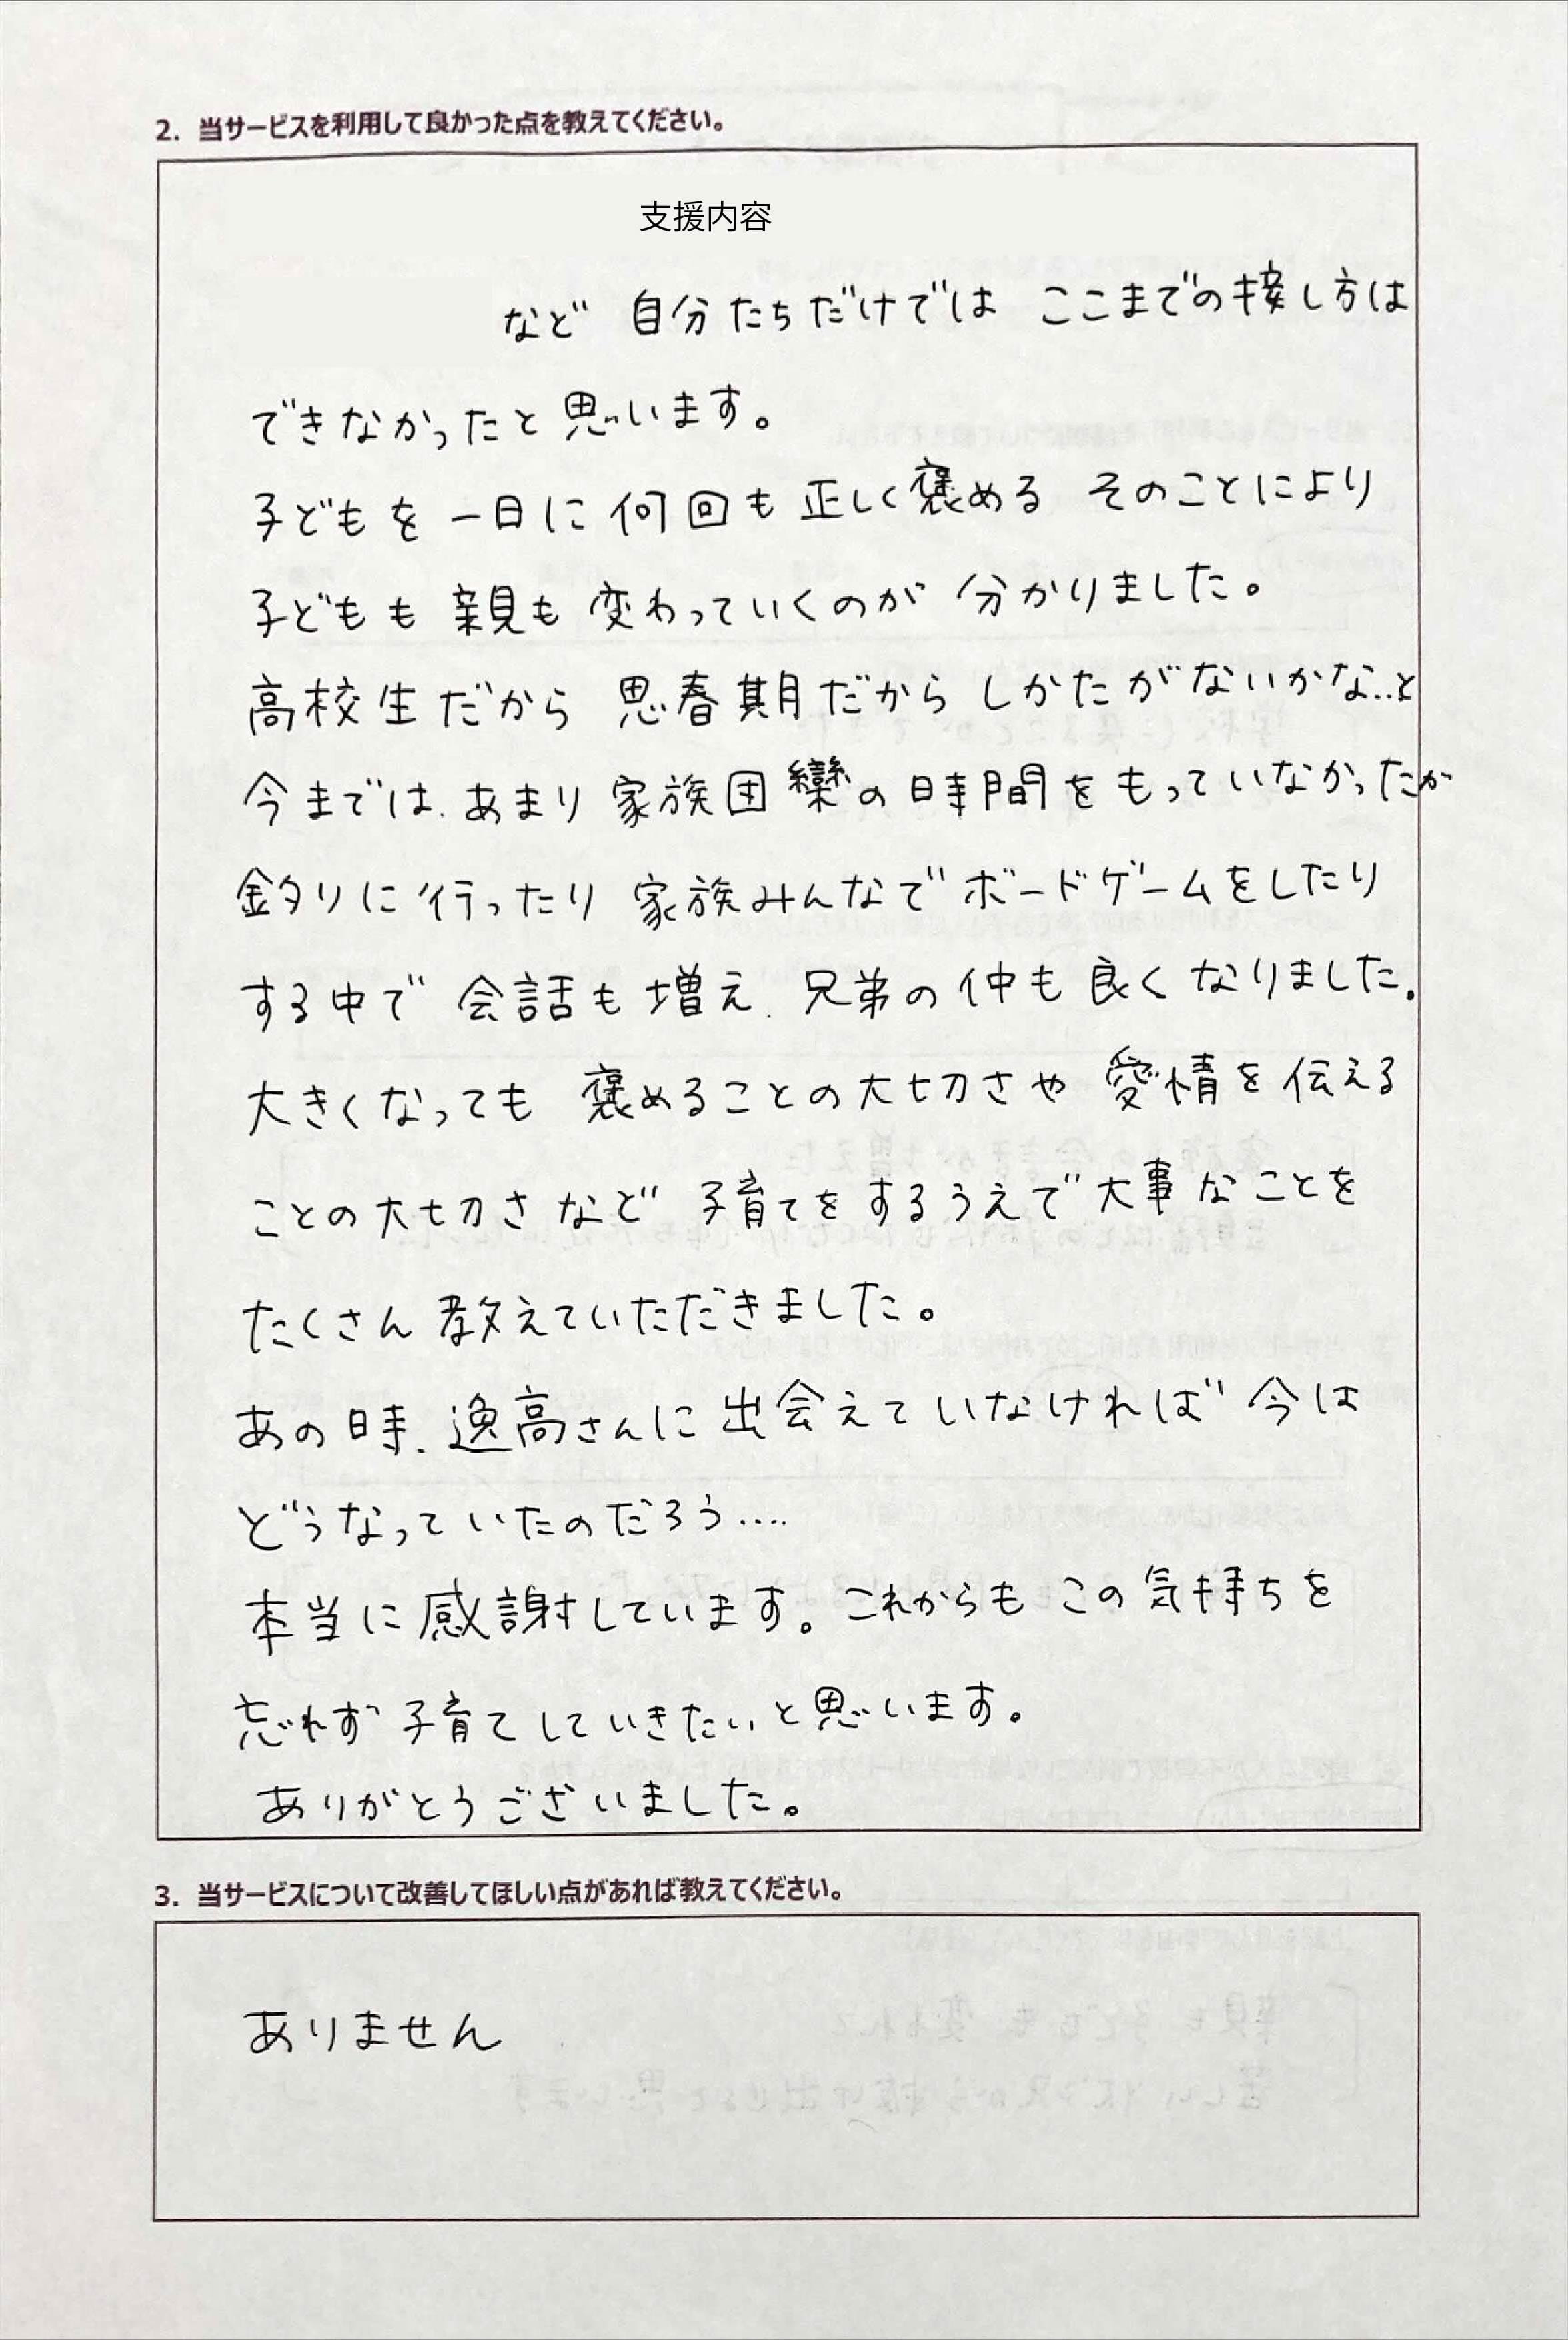 2. 当サービスを利用して良かった点を教えてください。
支援内容
など 自分たちだけでは ここまでの接し方は
できなかったと思います。
子どもを 一日に 何回も 正しく褒める そのことにより
子どもも 親も 変わっていくのが 分かりました。
高校生だから 思春期だから しかたがないかな..と
今までは、あまり 家族団欒の時間をもっていなかったが
釣りに行ったり 家族みんなでボードゲームをしたり
する中で 会話も増え、兄弟の仲も良くなりました。
大きくなっても 褒めることの大切さや 愛情を伝える
ことの大切さなど 子育てをするうえで大事なことを
たくさん教えていただきました。
あの時、逸高さんに出会えていなければ 今は
どうなっていたのだろう....
本当に感謝しています。これからもこの気持ちを
忘れず子育てしていきたいと思います。
ありがとうございました。
3. 当サービスについて改善してほしい点があれば教えてください。
ありません